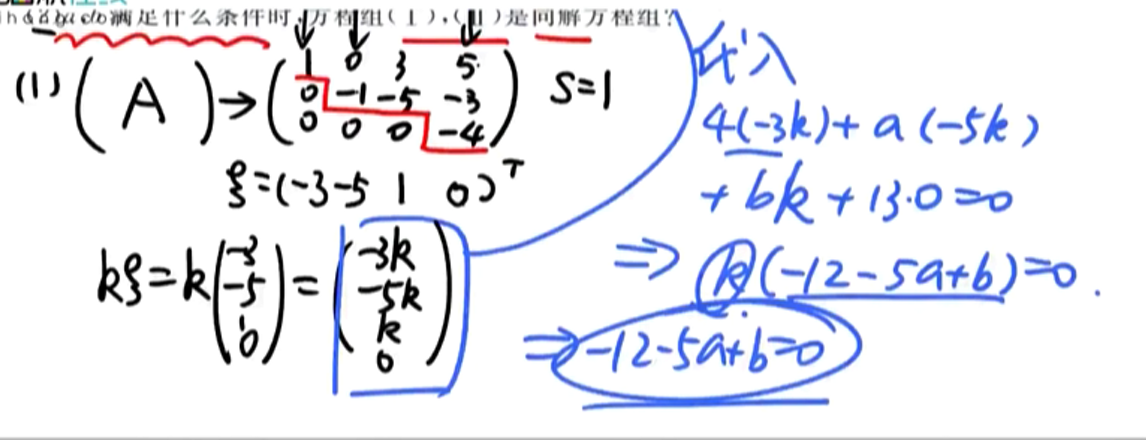 满足什么条件时,方程组(Ⅰ),(Ⅱ)是同解方程组?
(1) (A)→(1 0 3 5
0 -1 -5 -3
0 0 0 -4) S=1
ξ=(-3 -5 1 0)ᵀ
kξ=k(-3
-5
1
0)=(-3k
-5k
k
0)
代入
4(-3k)+a(-5k)
+bk+13·0=0
⇒ k(-12-5a+b)=0.
⇒ -12-5a+b=0